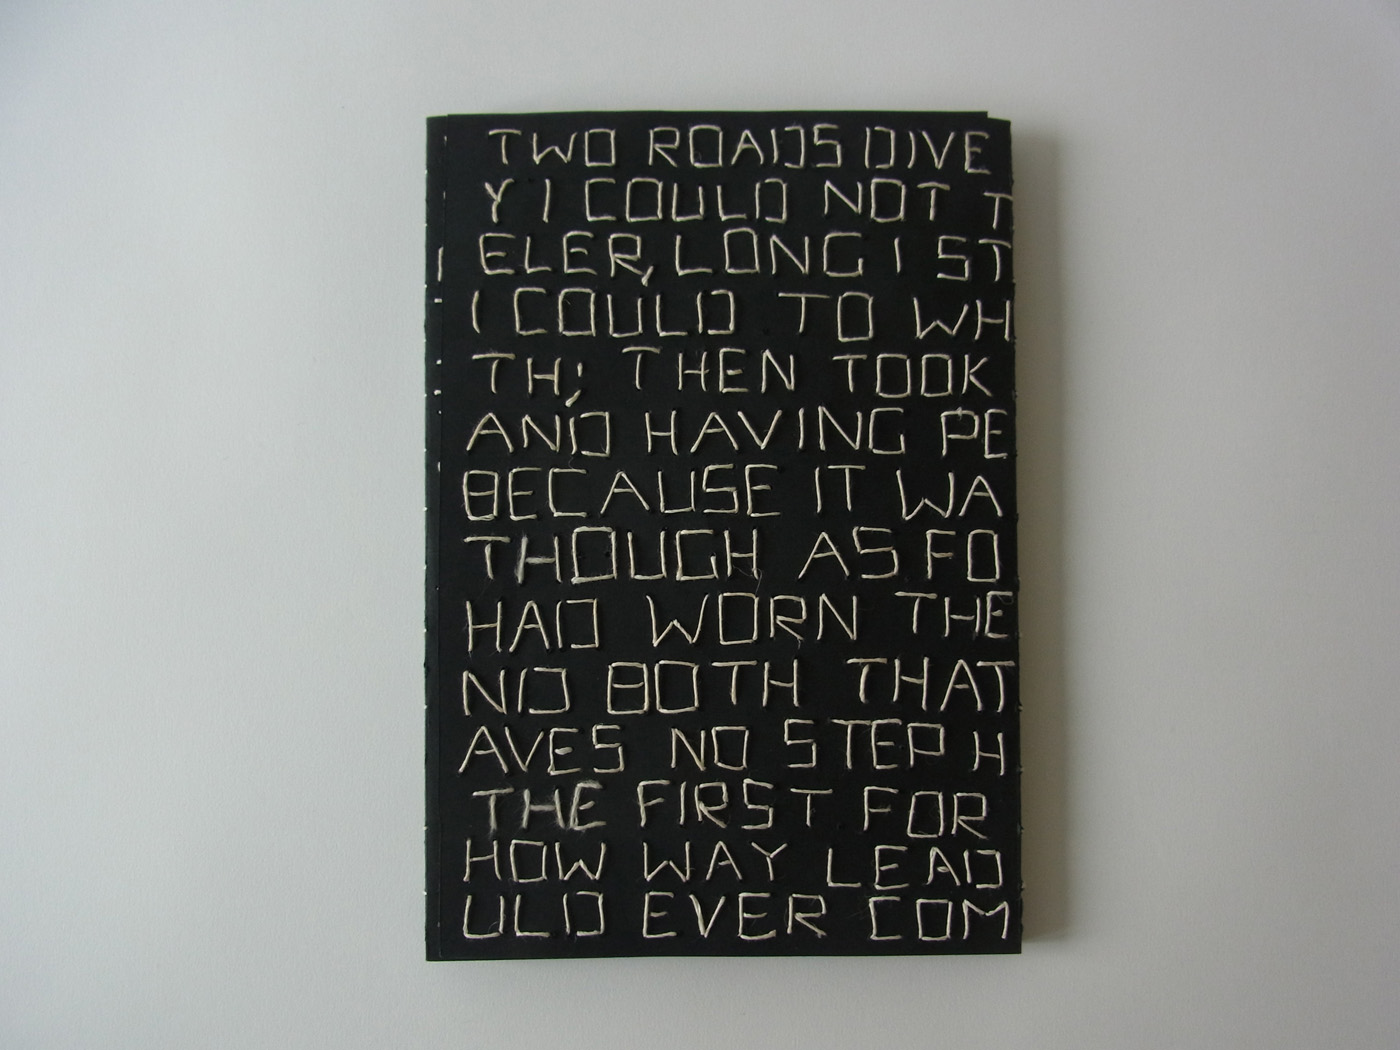 TWO ROADS DIVE
Y I COULD NOT T
ELER, LONG I ST
I COULD TO WH
TH; THEN TOOK
AND HAVING PE
BECAUSE IT WA
THOUGH AS FO
HAD WORN THE
ND BOTH THAT
AVES NO STEP H
THE FIRST FOR
HOW WAY LEAD
ULD EVER COM